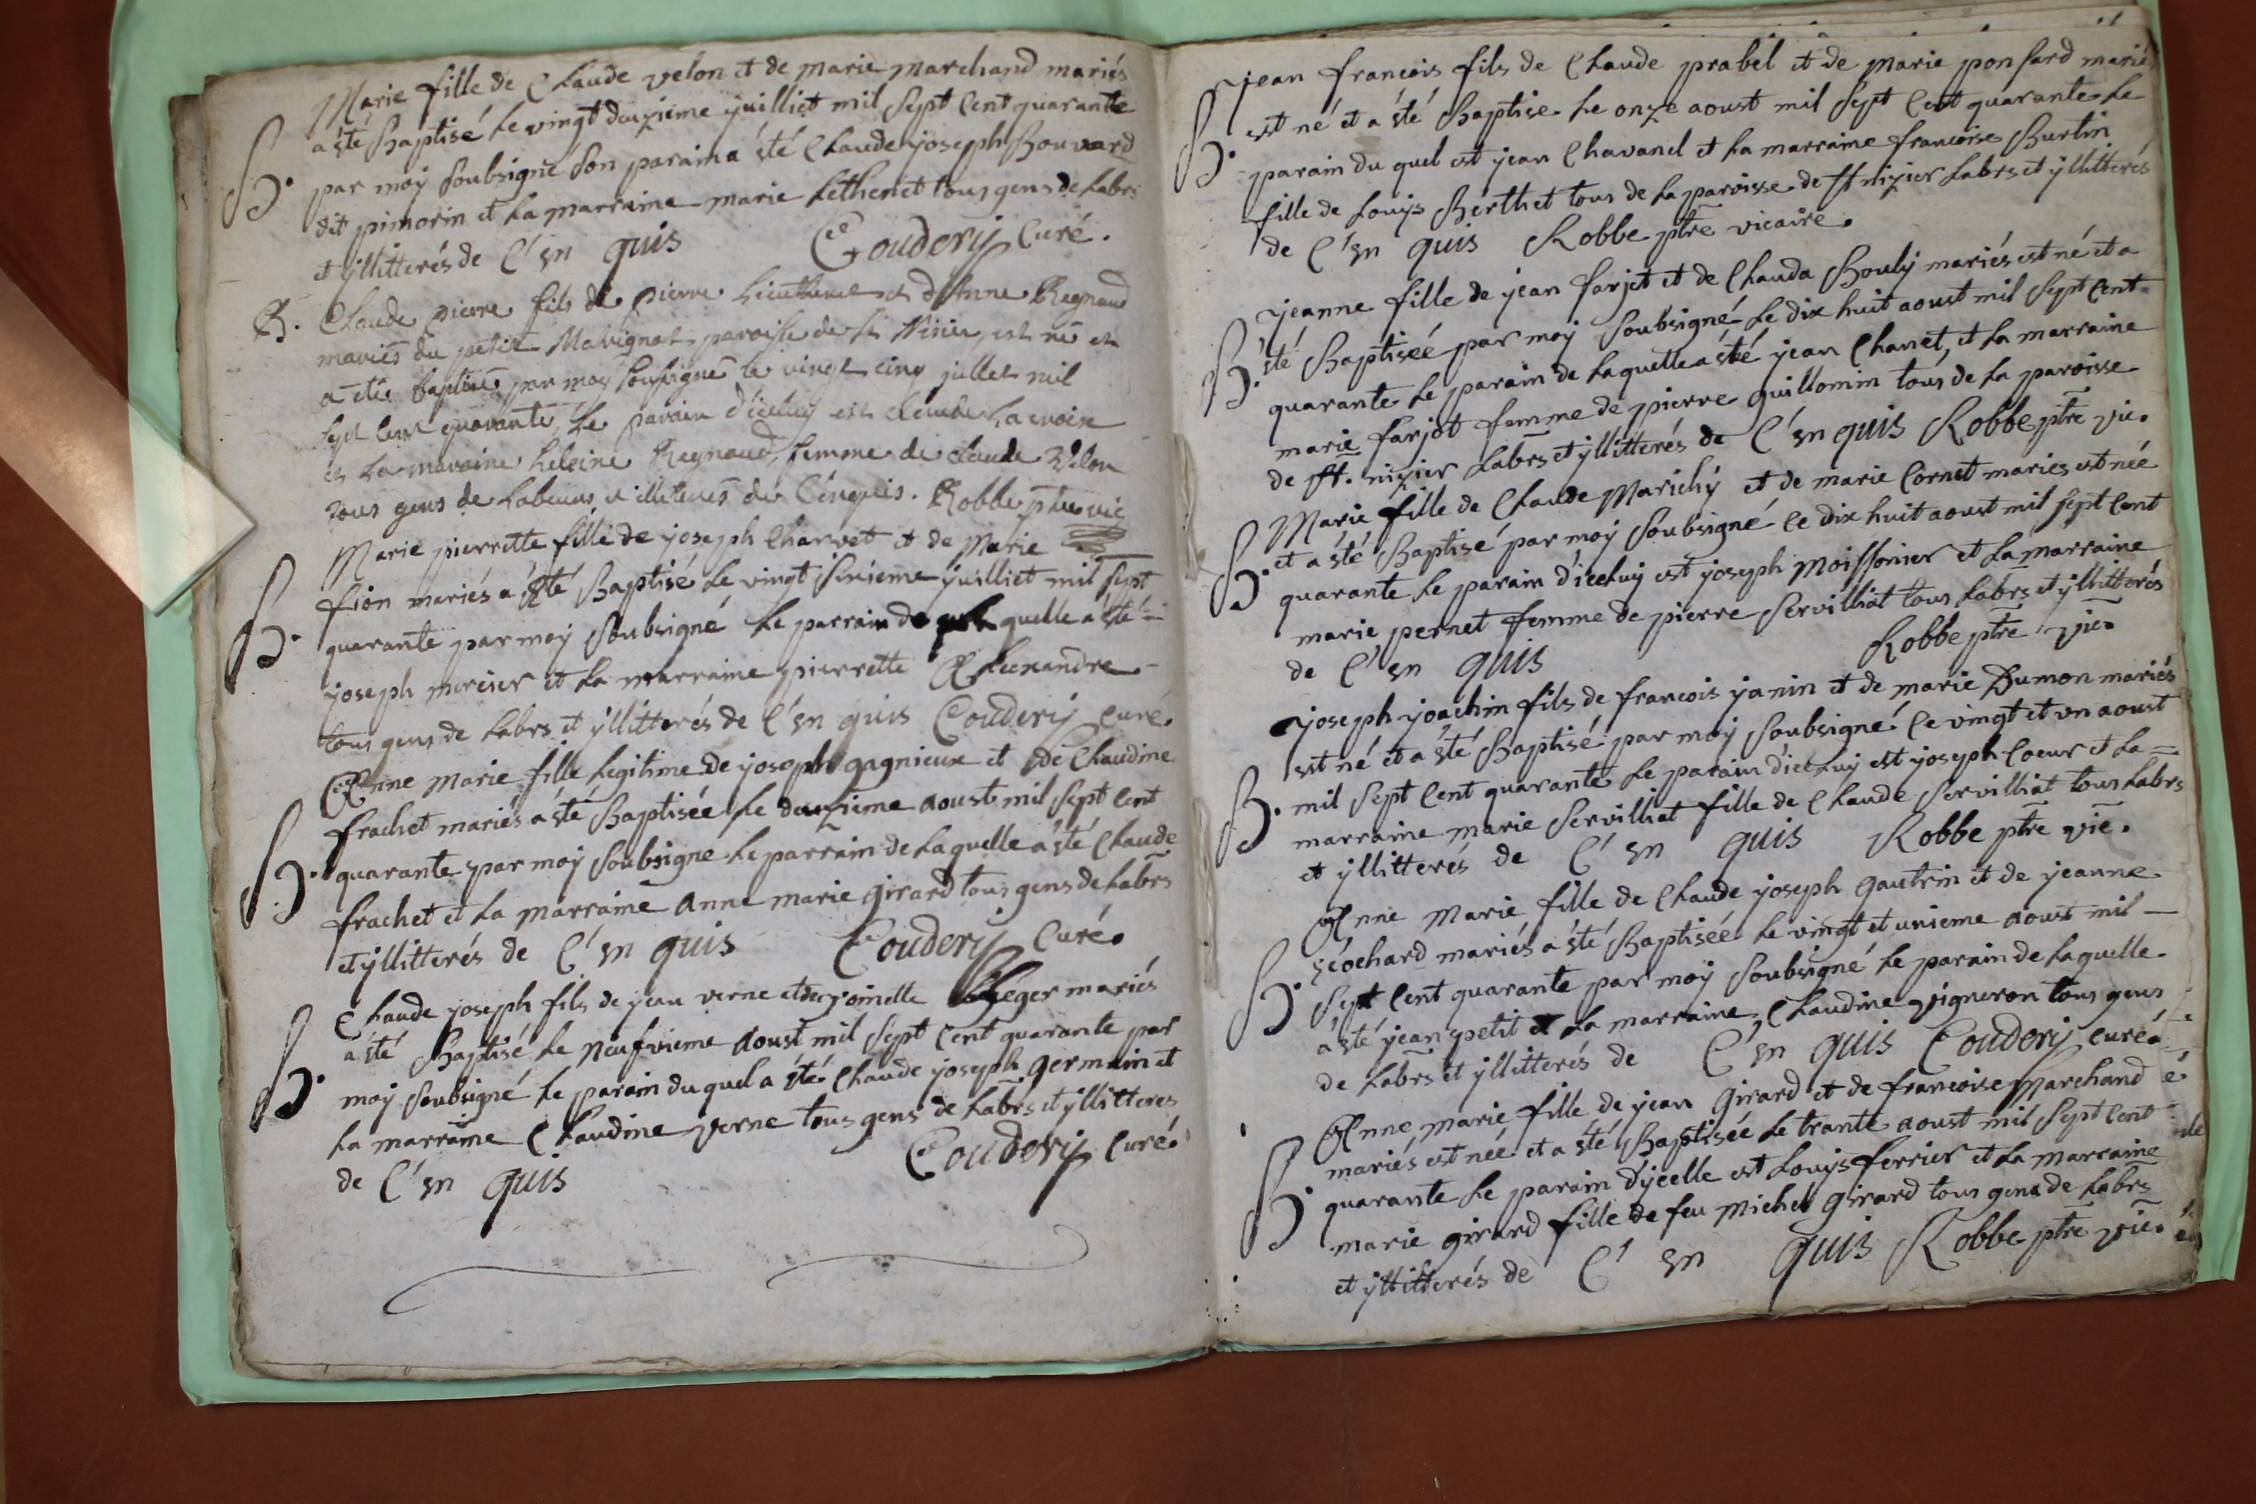 Marie fille de Claude velon et de marie marchand mariés
B. a êté Baptisé le vingt deuzieme juilliet mil sept cent quarante
par moÿ soubsigné son paraina êté Claude joseph Bouvard
dit pimorin et la marraine marie Lethenet tous gens de labrs
et ÿllitterés de C'en quis Couderij Curé.
B. Claude pierre fils de pierre Lieuthenet et d'Anne Regnaud
mariés du petit Malvignat paroisse de St Nisier, est né et
a été baptisé par moy soussigné le vingt cinq juillet mil
sept cent quarante, Le parain d'iceluy est claude Lacroix
et La maraine heleine Regnaud, femme de claude Velon
tous gens de Labeurs et illiterés de Cénquis. Robbe ptre vic
Marie pierrette fille de joseph Charvet et de Marie
B. fion mariés a êté Baptisé le vingt sixieme juilliet mil sept
quarante par moÿ soubsigné le parrain de quelle a êté
joseph mercier et la marraine pierrette Alexandre
tous gens de labrs et ÿllitterés de C'en quis Couderij curé.
Anne Marie fille legitime de joseph gagnieux et de Claudine
B. frachet mariés a êté Baptisée le deuzieme aoust mil sept cent
quarante par moÿ soubsigné le parrain de laquelle a êté Claude
frachet et la marraine anne marie girard tous gens de labrs
et ÿllitterés de C'en quis Couderij Curé.
Claude joseph fils de jean verne et de joinette Leger mariés
B. a êté Baptisé le neufvieme aoust mil sept cent quarante par
moÿ soubsigné le parain du quel a êté Claude joseph germain et
la marraine Claudine verne tous gens de labrs et ÿllitteres
de C'en quis Couderij Curé.
jean francois fils de Claude prabel et de marie ponsard mariés
B. est né et a êté Baptise le onze aoust mil sept cent quarante le
parain du quel est jean Chavanel et la marraine francoise Burtin
fille de Louÿs Berthet tous de la paroisse de st nizier labrs et ÿllitterés
de C'en quis Robbe ptre vicaire.
jeanne fille de jean farjet et de Clauda Boulÿ mariés est né et a
B. êté Baptisée par moÿ soubsigné le dix huit aoust mil sept cent
quarante le parain de laquelle a êté jean Chanet, et la marraine
marie farjot femme de pierre guillomin tous de la paroisse
de st. nizier labrs et ÿllitterés de C'en quis Robbe ptre vic.
Marie fille de Claude Marichÿ et de marie Cornet maries est née
B. et a êté Baptisé par moÿ soubsigné le dix huit aoust mil sept cent
quarante le parain d'iceluÿ est joseph moissonier et la marraine
marie pernet femme de pierre servilliat tous labrs et ÿllitterés
de C'en quis Robbe ptre vic.
joseph joachim fils de francois janin et de marie Dumon mariés
est né et a êté Baptisé par moÿ soubsigné le vingt et vn aoust
B. mil sept cent quarante le parain d'iceluÿ est joseph Coeur et la
marraine marie servilliat fille de Claude servilliat tous labrs
et ÿllitterés de C'en quis Robbe ptre vic.
Anne Marie fille de Claude joseph gautrin et de jeanne
B. géochard mariés a êté Baptisée le vingt et unieme aoust mil
sept cent quarante par moÿ soubsigné le parain de laquelle
a êté jean petit et la marraine, Claudine vigneron tous gens
de labrs et ÿllitterés de C'en quis Couderij curé.
Anne marie fille de jean girard et de francoise marchand
B. mariés est née et a êté Baptisée le trante aoust mil sept cent
quarante le parain d'ÿcelle est Louÿs ferrier et la marraine
marie girard fille de feu michel girard tous gens de labrs
et ÿllitterés de C'en quis Robbe ptre vic.